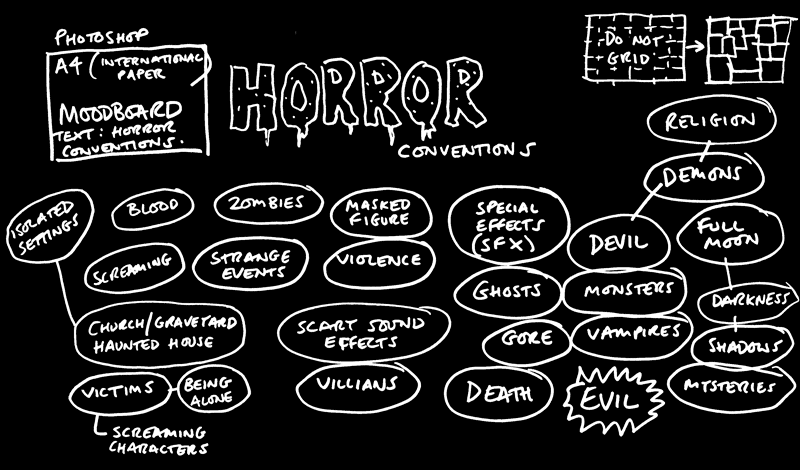 PHOTOSHOP
A4 (INTERNATIONAL
PAPER)
MOODBOARD
TEXT: HORROR
CONVENTIONS.
HORROR
CONVENTIONS
DO NOT
GRID
RELIGION
DEMONS
ISOLATED
SETTINGS
BLOOD
ZOMBIES
MASKED
FIGURE
SPECIAL
EFFECTS
(SFX)
DEVIL
FULL
MOON
SCREAMING
STRANGE
EVENTS
VIOLENCE
GHOSTS
MONSTERS
DARKNESS
CHURCH/GRAVEYARD
HAUNTED HOUSE
SCART SOUND
EFFECTS
GORE
VAMPIRES
SHADOWS
VICTIMS
BEING
ALONE
VILLIANS
DEATH
EVIL
MYSTERIES
SCREAMING
CHARACTERS